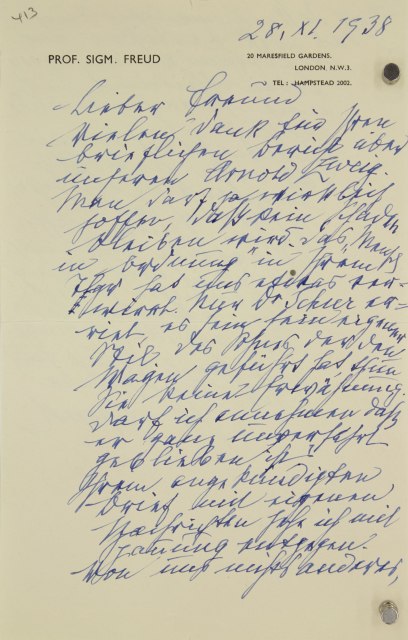 413
28. XI. 1938
PROF. SIGM. FREUD
20 MARESFIELD GARDENS,
LONDON. N.W.3.
TEL: HAMPSTEAD 2002.
Lieber Freund
Vielen Dank für Ihren
brieflichen Bericht über
unseren Arnold Zweig.
Man darf ja wirklich
hoffen, daß kein Schaden
bleiben wird. Das
in Ordnung" in Ihrem
hat uns etwas ver-
wirrt. Nur Dr Schur er-
riet, es sein eigener
Stil. Des Sohns der den
Wagen geführt hat thun
Sie keine Erwähnung.
Darf ich annehmen daß
er ganz unversehrt
geblieben ist?
Ihrem angekündigten
Brief mit eigenen
Nachrichten sehe ich mit
entgegen.
Von uns nichts anderes,